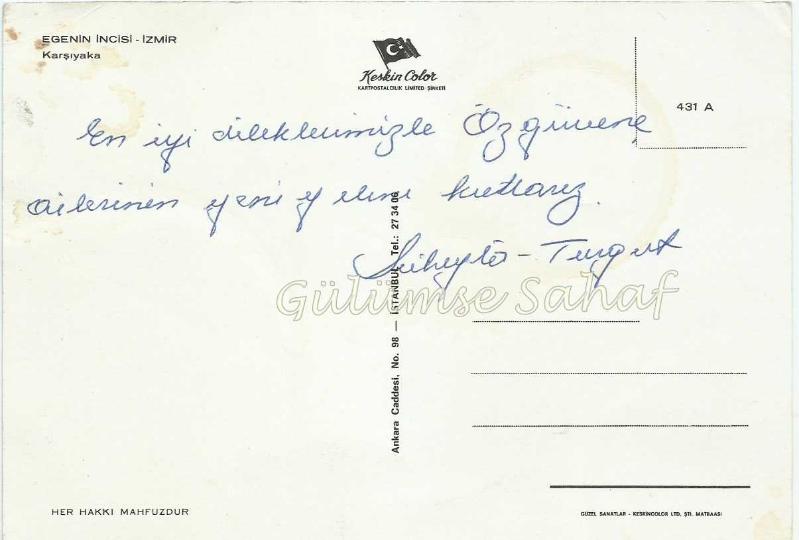 EGENİN İNCİSİ - İZMİR
Karşıyaka
Keskin Color
KARTPOSTALCILIK LİMİTED ŞİRKETİ
431 A
En iyi dileklerimizle Özgüvene
ailesinin yeni yılını kutlarız.
Süheyla - Turgut
Gülümse Sahaf
Ankara Caddesi, No. 98 — İSTANBUL Tel.: 27 34 06
HER HAKKI MAHFUZDUR
GÜZEL SANATLAR - KESKİNCOLOR LTD. ŞTİ. MATBAASI